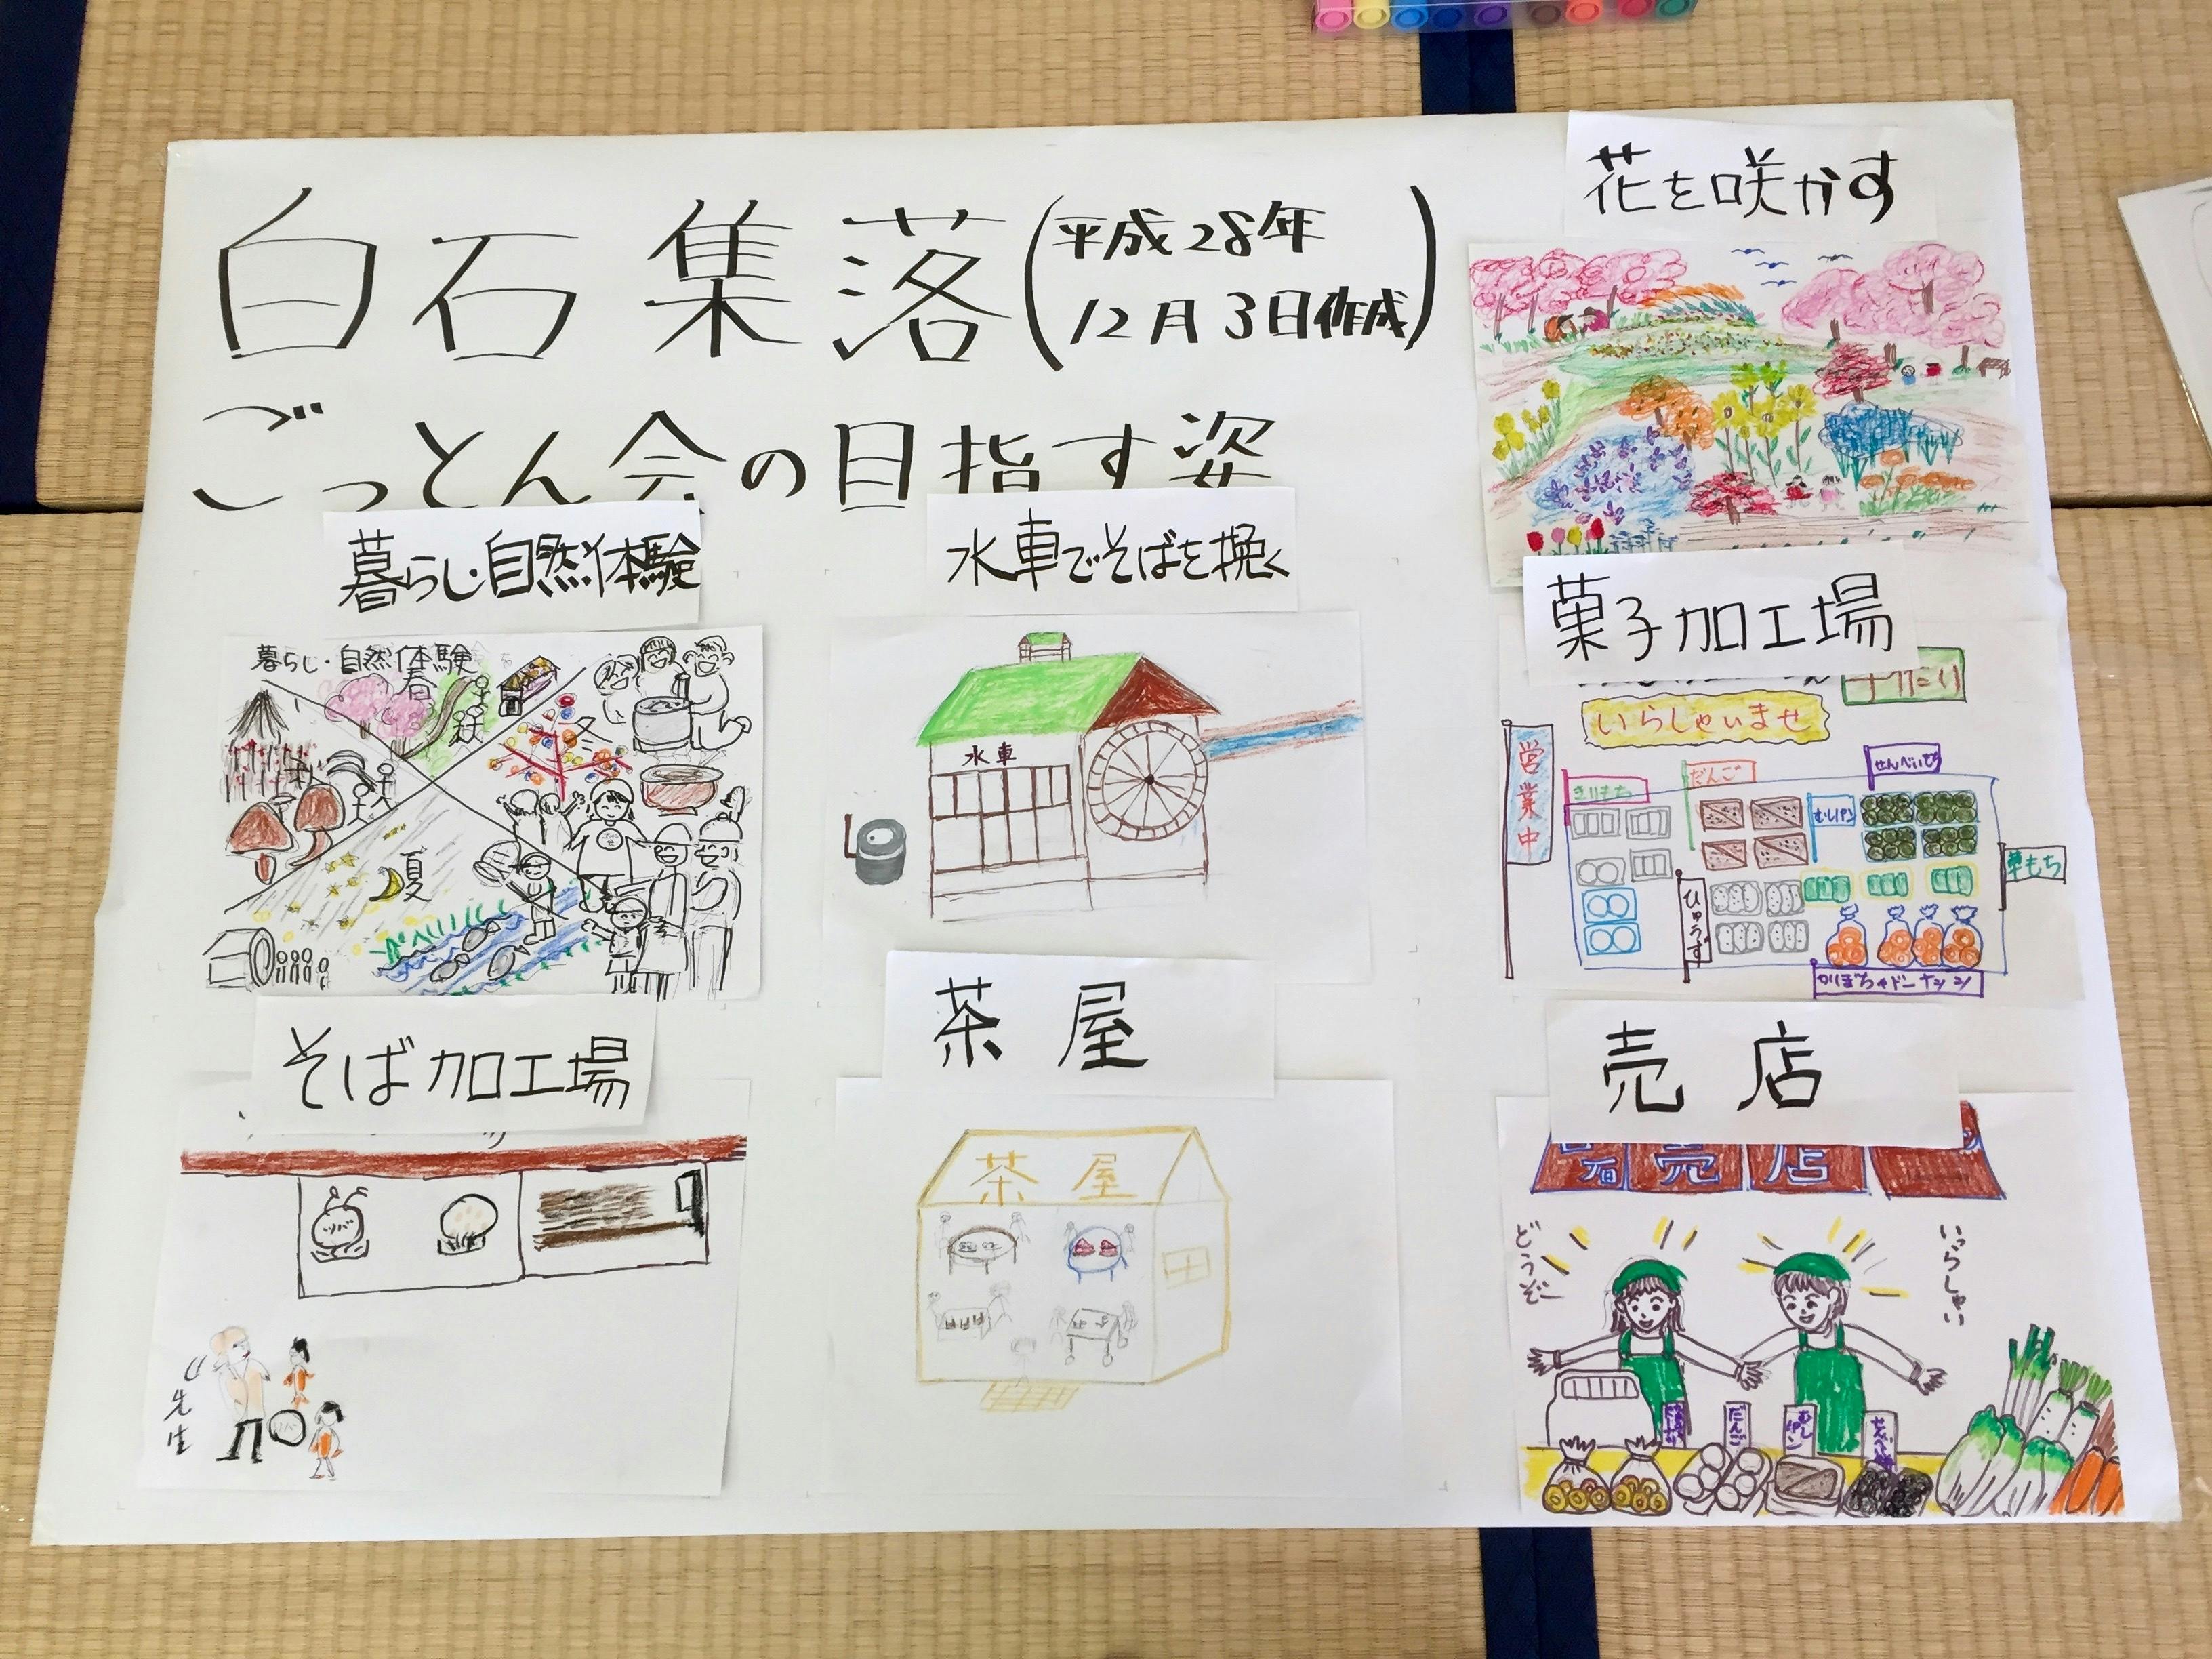 白石集落(平成28年
12月3日作成)
ごっとん会の目指す姿
花を咲かす
暮らし・自然体験
暮らし・自然体験
春
秋
夏
水車でそばを挽く
水車
菓子加工場
いらしゃいませ
営業中
きりもち
だんご
むしパン
せんべいもち
草もち
ひゅうず
かぼちゃドーナツ
そば加工場
先生
茶屋
茶屋
売店
白石売店
どうぞー
いらっしゃい
だんご
むしパン